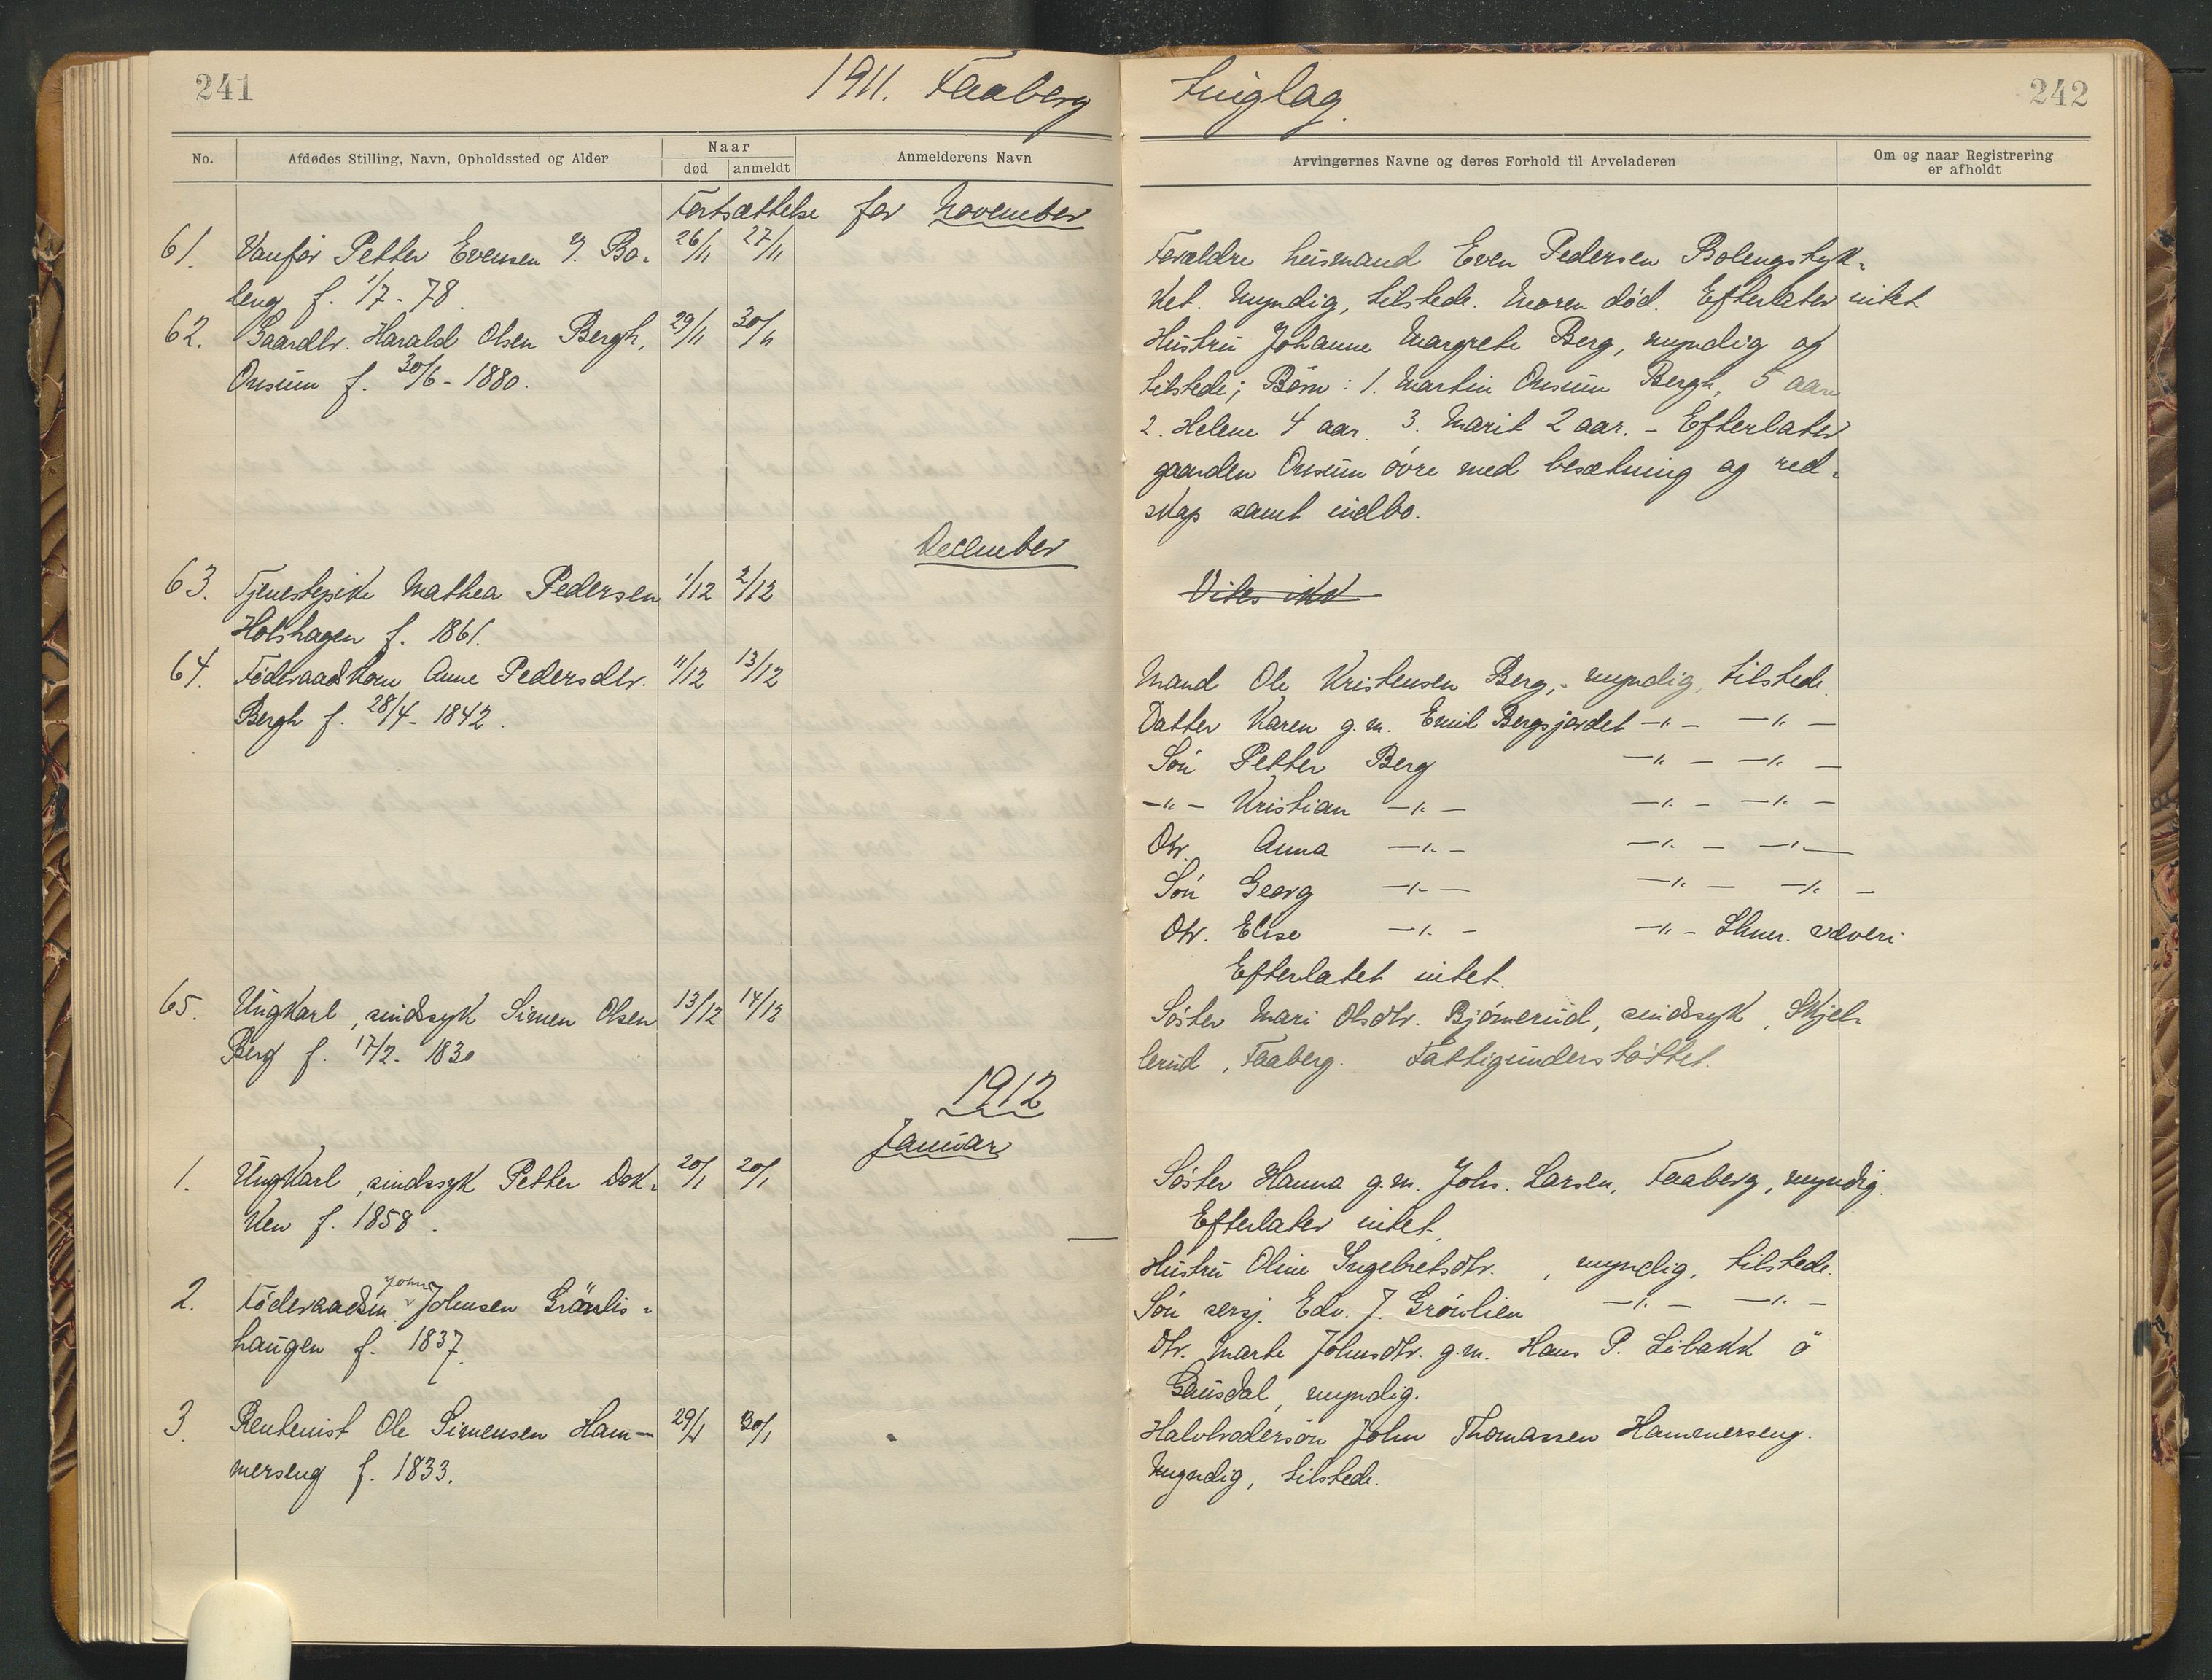 241
1911. Faaberg
No.
Afdødes Stilling, Navn, Opholdssted og Alder
Naar
død
anmeldt
Anmelderens Navn
Fortsættelse for November
61. Vanfør Petter Evensen Y. Bo- 26/11 27/11
leng f. 1/7 - 78.
62. Gaardbr. Harald Olsen Bergh, 29/11 30/11
Onsum f. 30/6 - 1880.
December
63. Tjenestepike Mathea Pedersen 1/12 2/12
Holshagen f. 1861.
64. Föderaadskone Anne Pedersdtr. 11/12 13/12
Bergh f. 28/4 - 1842.
65. Ungkarl, sindssyk Simen Olsen 13/12 14/12
Berg f. 17/2 - 1830
1912
Januar
1. Ungkarl, sindssyk Petter Dok- 20/1 20/1
ken f. 1858.
John
2. Föderaadsm. Johnsen Grönlis-
haugen f. 1837.
3. Rentenist Ole Simensen Ham- 29/1 30/1
merseng f. 1833.
Tinglag.
242
Arvingernes Navne og deres Forhold til Arveladeren
Om og naar Registrering
er afholdt
Forældre husmand Even Pedersen Bolengstyk-
ket. Myndig, tilstede. Moren død. Efterlater intet
Hustru Johanne Margrete Berg, myndig og
tilstede; Børn: 1. Martin Onsum Bergh, 5 aar
2. Helene 4 aar. 3. Marit 2 aar. - Efterlater
gaarden Onsum övre med besætning og red-
skap samt indbo.
Vites ikke
Mand Ole Kristensen Berg, - myndig, tilstede.
Datter Karen g.m. Emil Bergsjordet -"- -"-
Sön Petter Berg -"- -"-
-"- Kristian -"- -"- -"-
Dtr. Anna -"- -"- -"-
Sön Georg -"- -"- -"-
Dtr. Elise -"- -"- Lhmr. væveri
Efterlatet intet.
Søster Mari Olsdtr. Bjørnerud, sindssyk, Skjel-
lerud, Faaberg. Fattigunderstøttet.
Søster Hanna g.m. Johs. Larsen, Faaberg, myndig.
Efterlater intet.
Hustru Oline Ingebretsdtr., myndig, tilstede.
Sön sersj. Edv. J. Grönlien -"- -"-
Dtr. Marte Johnsdtr. g.m. Hans P. Libakk ö
Gausdal, myndig.
Halvbrodersön John Thomassen Hammerseng.
Myndig, tilstede.